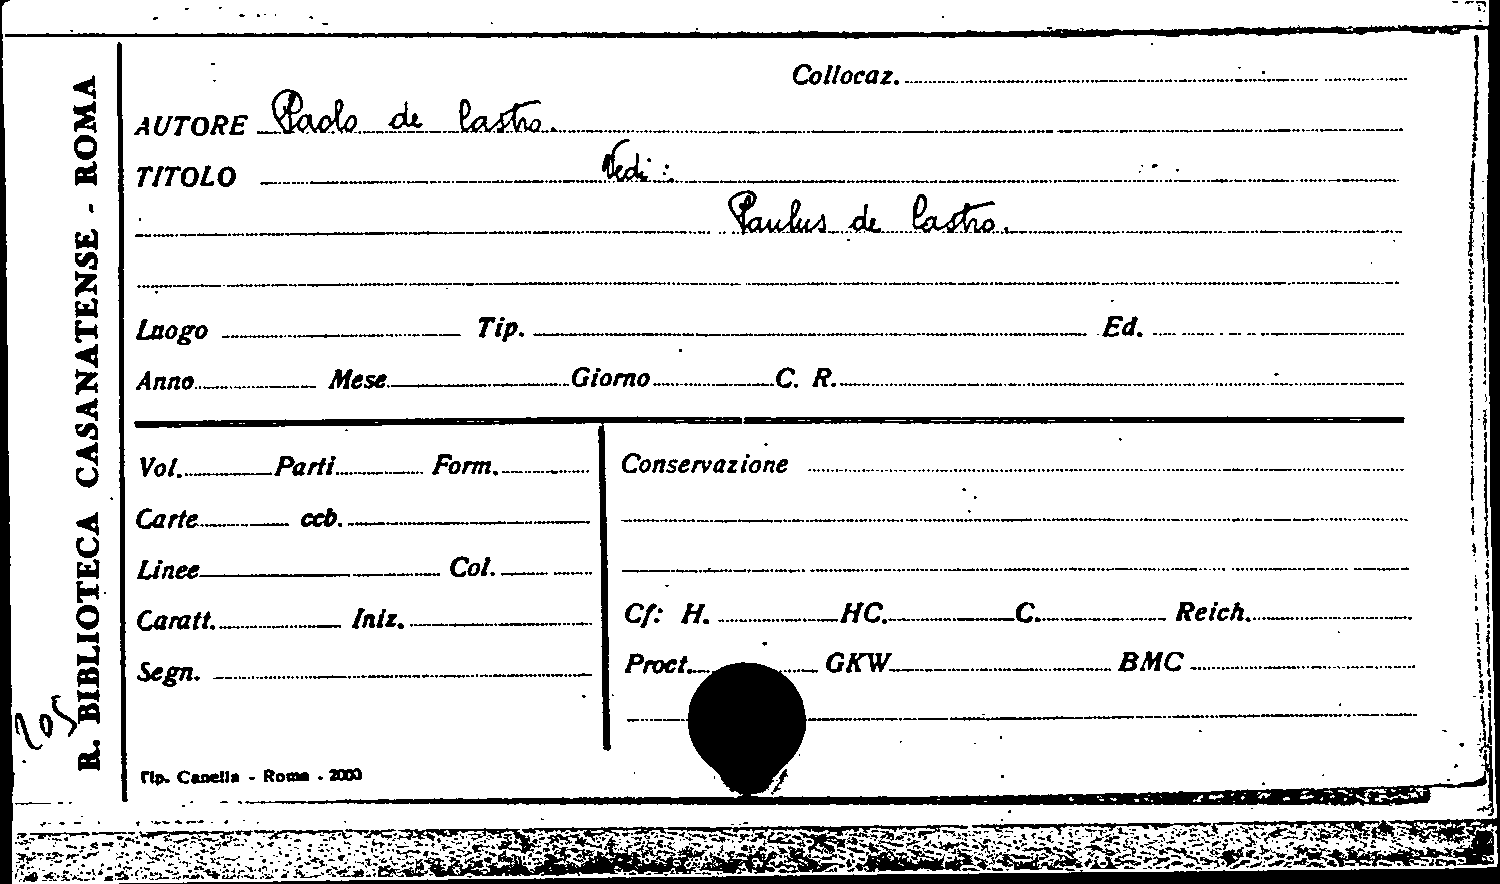 R. BIBLIOTECA CASANATENSE - ROMA
Collocaz.
AUTORE Paolo de Castro.
TITOLO Vedi:
Paulus de Castro.
Luogo Tip. Ed.
Anno Mese Giorno C. R.
Vol. Parti Form.
Carte ccb.
Linee Col.
Caratt. Iniz.
Segn.
Conservazione
Cf: H. HC. C. Reich.
Proct. GKW BMC
205
Tip. Canella - Roma - 2000